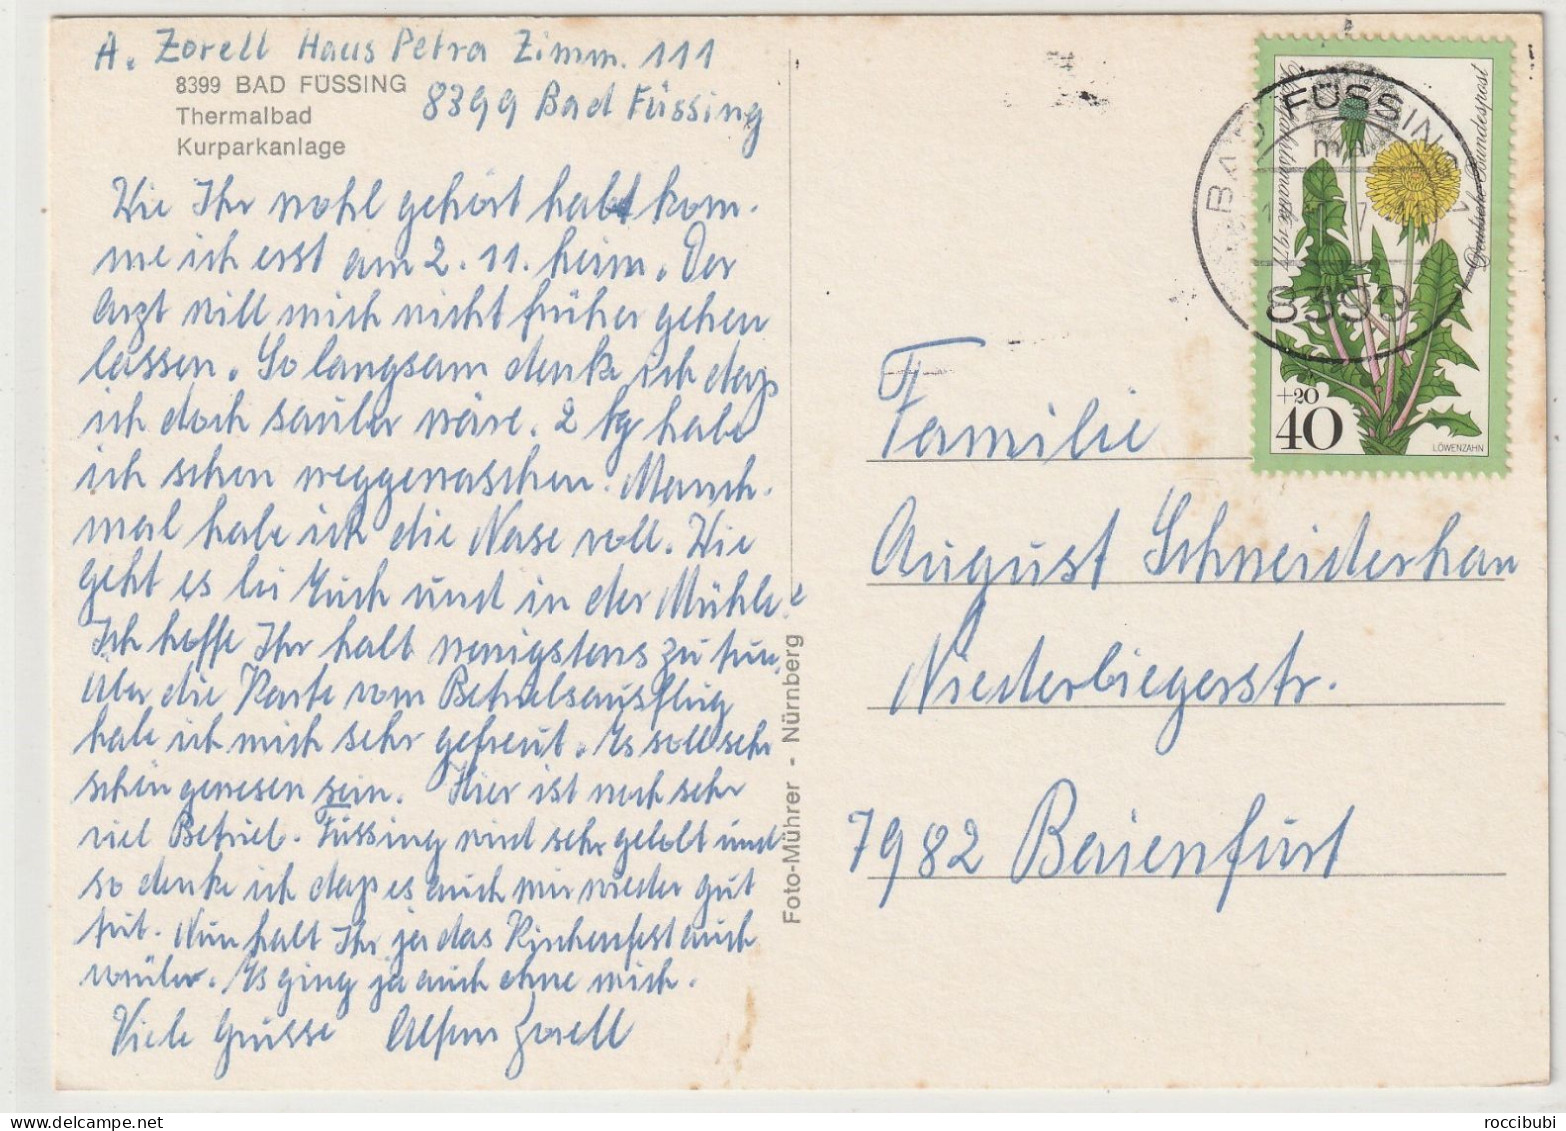 A. Zorell Haus Petra Zimm. 111
8399 BAD FÜSSING
8399 Bad Füssing
Thermalbad
Kurparkanlage
Wie Ihr wohl gehört habt kom-
me ich erst am 2.11. heim. Der
Arzt will mich nicht früher gehen
lassen. So langsam denke ich daß
ich doch sauber wäre. 2 kg habe
ich schon weggewaschen. Manch-
mal habe ich die Nase voll. Wie
geht es bei Euch und in der Mühle?
Ich hoffe Ihr habt wenigstens zu tun.
Über die Karte vom Betriebsausflug
habe ich mich sehr gefreut. Es soll sehr
schön gewesen sein. Hier ist noch sehr
viel Betrieb. Füssing wird sehr gelobt und
so denke ich daß es auch mir wieder gut
tut. Nun habt Ihr ja das Kirchenfest auch
vorüber. Es ging ja auch ohne mich.
Viele Grüsse Zorell
Foto-Mührer - Nürnberg
Deutsche Bundespost
Wohlfahrtsmarke 1977
+20
40
LÖWENZAHN
BAD FÜSSING
8399
Familie
August Schneiderhan
Niederbiegerstr.
7982 Baienfurt
roccibubi